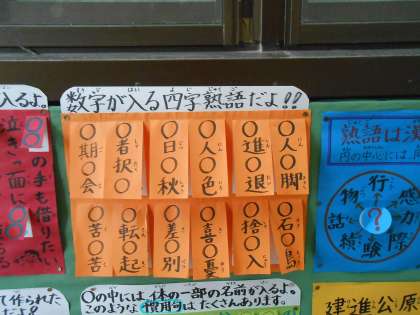 入るよ。
数字が入る四字熟語だよ!!
○人○脚
○進○退
○人○色
○日○秋
○者択○
○期○会
○石○鳥
○捨○入
○喜○憂
○差○別
○転○起
○苦○苦
の手も借りたい
泣き面に
熟語は
円の中心には
行
物
感
話
?
力
験
○の中には体の一部の名前が入るよ。
このような慣用句はたくさんあります。
て作られた
だよ!
建進公原